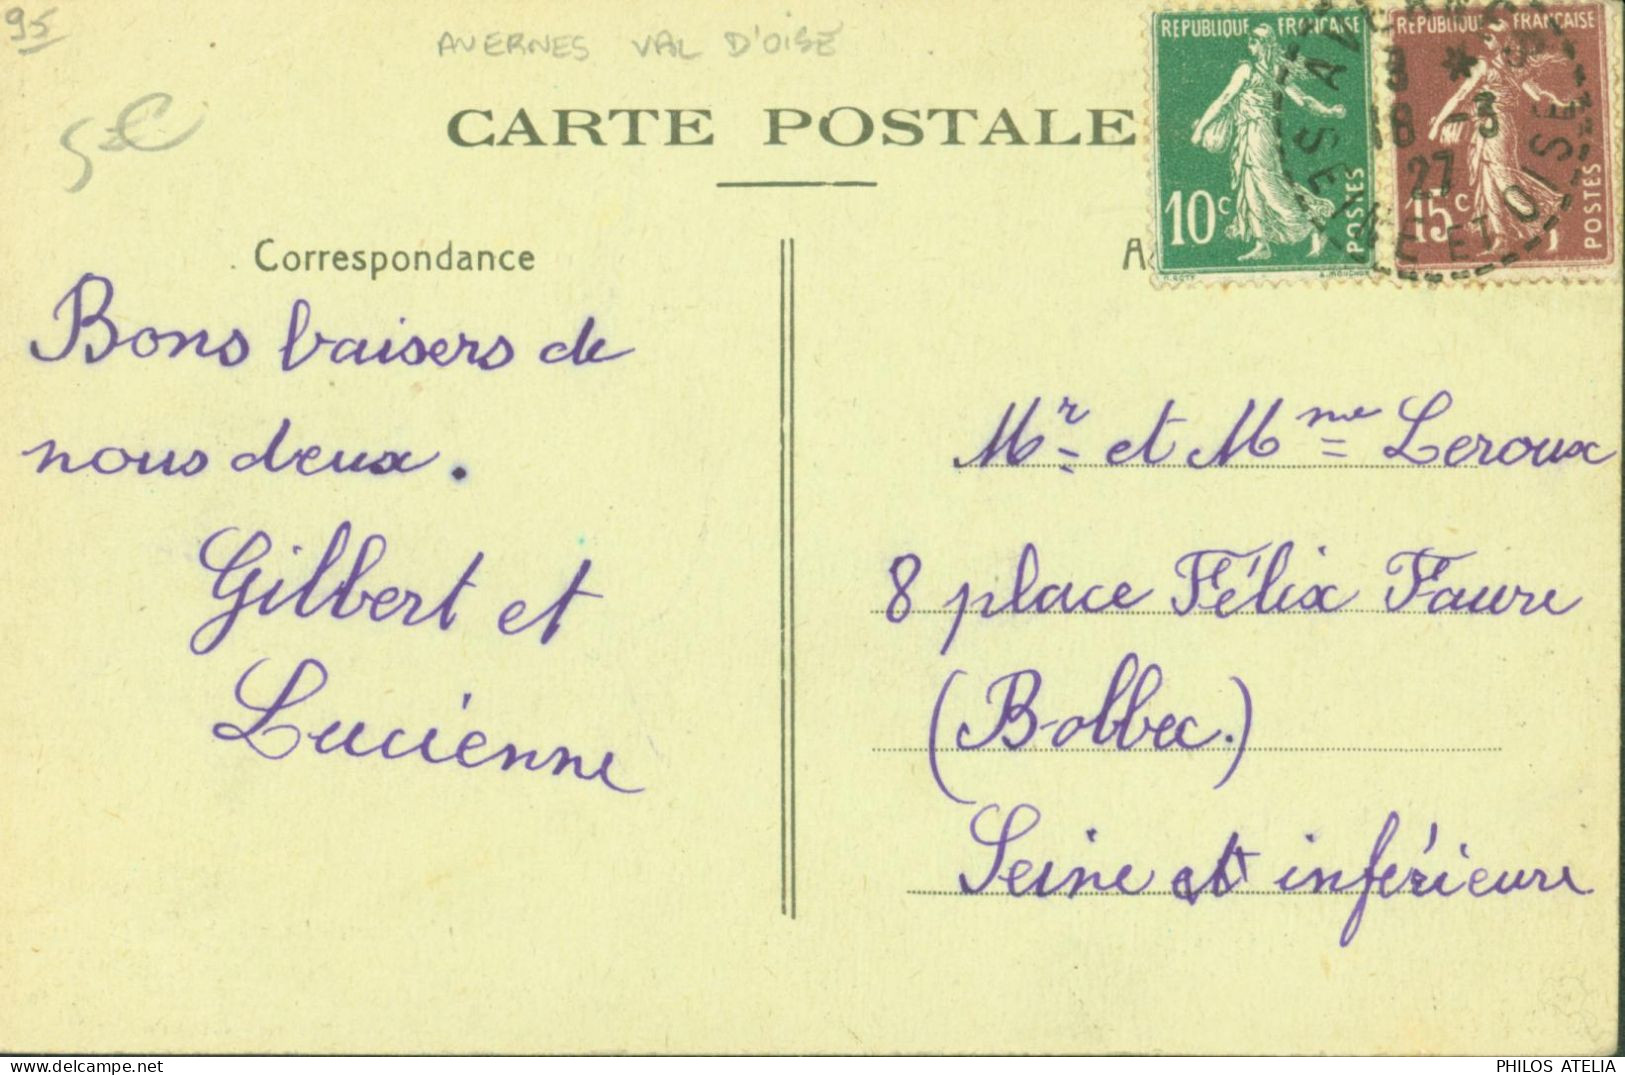 95
AVERNES VAL D'OISE
5€
CARTE POSTALE
Correspondance
Bons baisers de
nous deux.
Gilbert et
Lucienne
REPUBLIQUE FRANÇAISE
10c
POSTES
REPUBLIQUE FRANÇAISE
15c
POSTES
18 -3
27
SEINE ET OISE
Mr et Mme Leroux
8 place Félix Faure
(Bolbec.)
Seine et inférieure
PHILOS ATELIA